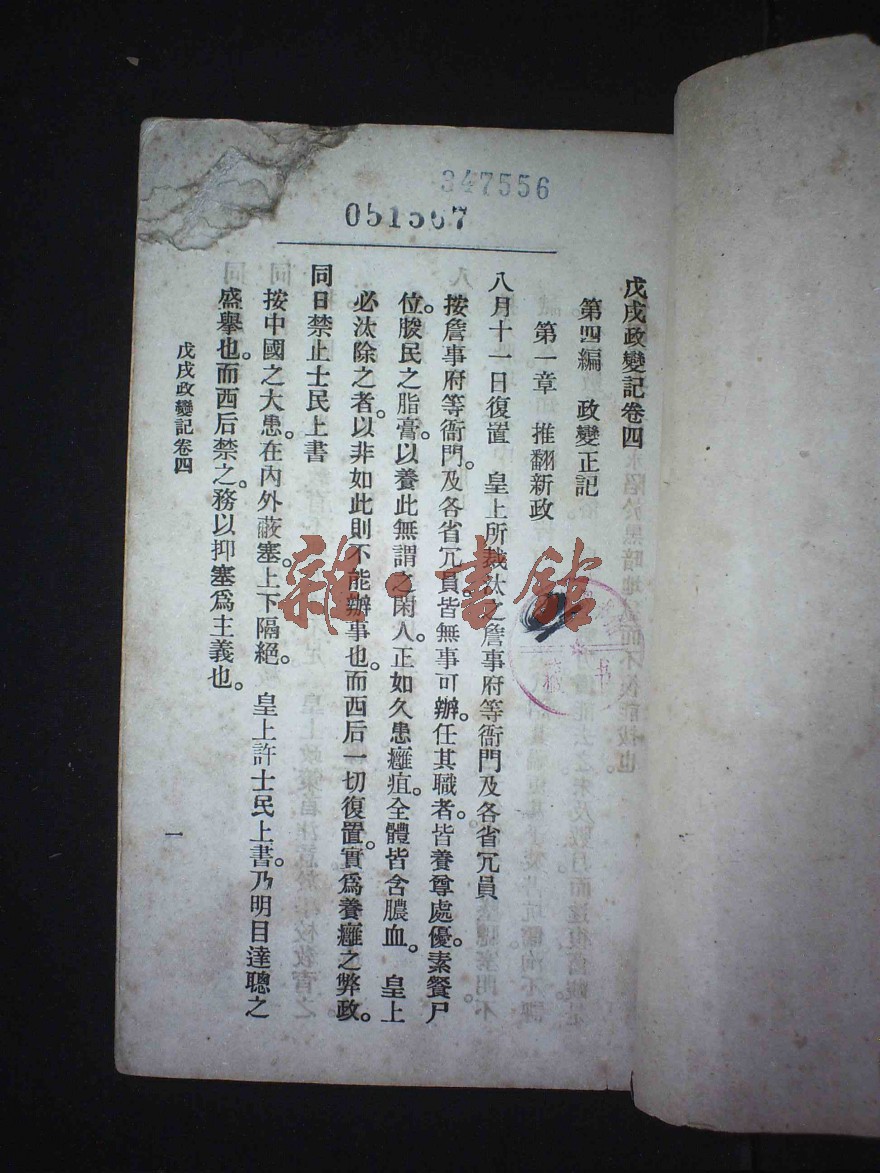 347556
051567
戊戌政變記卷四
第四編 政變正記
第一章 推翻新政
八月十一日復置 皇上所裁汰之詹事府等衙門及各省冗員
按詹事府等衙門。及各省冗員。皆無事可辦。任其職者。皆養尊處優。素餐尸
位。朘民之脂膏。以養此無謂之閑人。正如久患癰疽。全體皆含膿血。 皇上
必汰除之者。以非如此則不能辦事也。而西后一切復置。實爲養癰之弊政。
同日禁止士民上書
按中國之大患。在內外蔽塞。上下隔絕。 皇上許士民上書。乃明目達聰之
盛舉也。而西后禁之。務以抑塞爲主義也。
戊戌政變記卷四
一
雜·書館